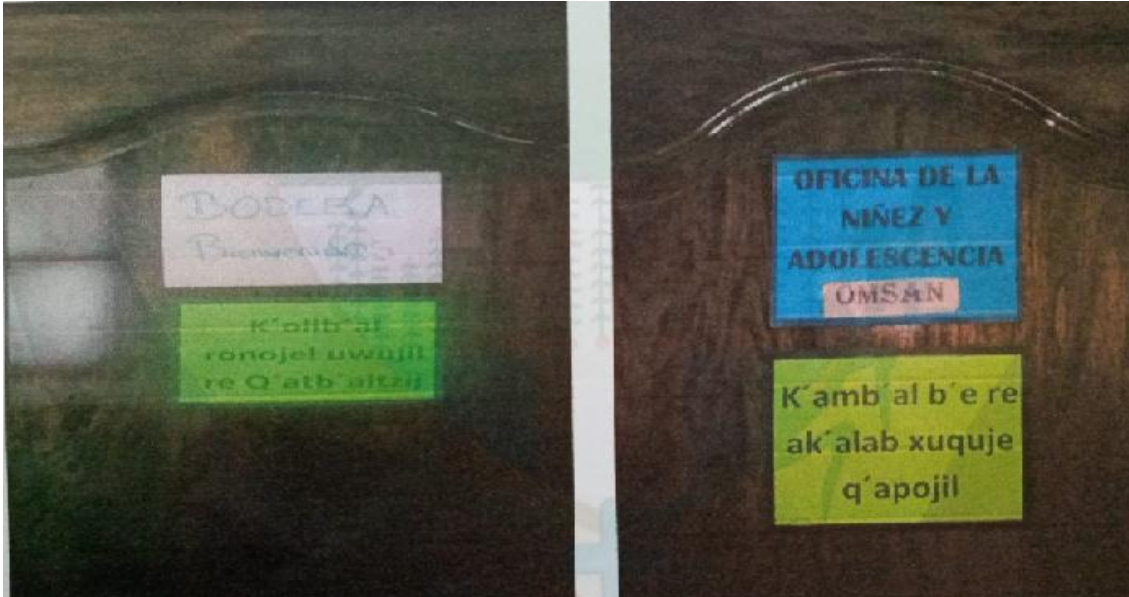 BODEGA
Bienvenid@s
K´olib´al
ronojel uwujil
re Q´atb´altzij
OFICINA DE LA
NIÑEZ Y
ADOLESCENCIA
OMSAN
K´amb´al b´e re
ak´alab xuquje
q´apojil